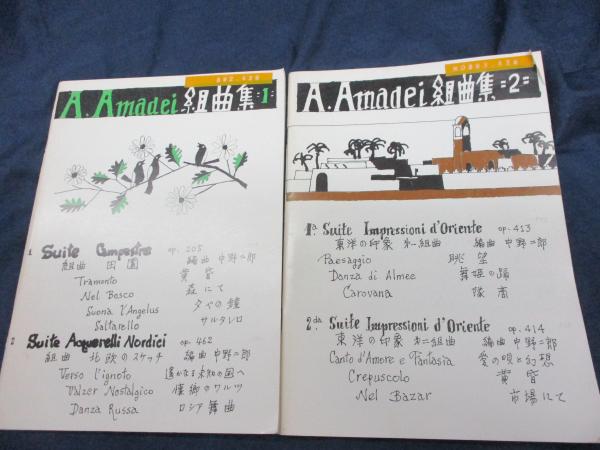 A. Amadei 組曲集 =1=
1 Suite Campestre op. 205
組曲 田園 編曲 中野二郎
Tramonto 黄昏
Nel Bosco 森にて
Suona l'Angelus 夕べの鐘
Saltarello サルタレロ
2 Suite Acquerelli Nordici op. 462
組曲 北欧のスケッチ 編曲 中野二郎
Verso l'ignoto 遙かなる未知の国へ
Valzer Nostalgico 懐郷のワルツ
Danza Russa ロシア舞曲
A. Amadei 組曲集 =2=
1a. Suite Impressioni d'Oriente op. 413
東洋の印象 第一組曲 編曲 中野二郎
Paesaggio 眺望
Danza di Almee 舞姫の踊
Carovana 隊商
2da. Suite Impressioni d'Oriente op. 414
東洋の印象 第二組曲 編曲 中野二郎
Canto d'Amore e Fantasia 愛の唄と幻想
Crepuscolo 黄昏
Nel Bazar 市場にて